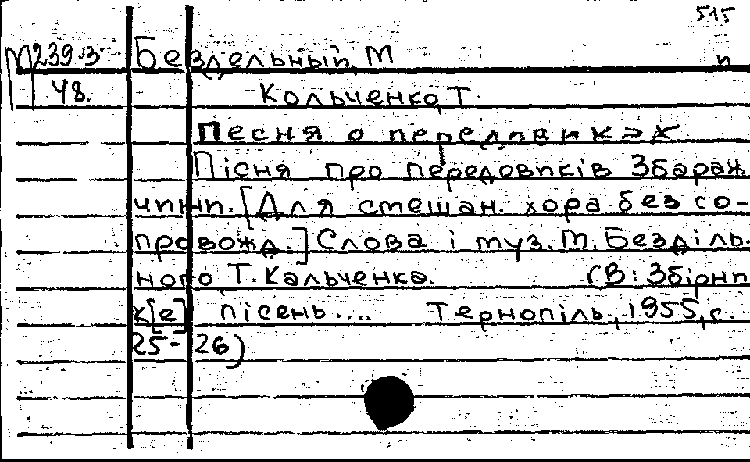 515
М239.3 Бездельный, М п
48. Кольченко, Т.
Песня о передовиках
Пісня про передовиків Збараж
чини. [Для смешан. хора без со-
провожд.] Слова і муз. М. Безділь-
ного, Т. Кальченка. (В: Збірни
к[е] пісень.... Тернопіль, 1955, с.
25-26)